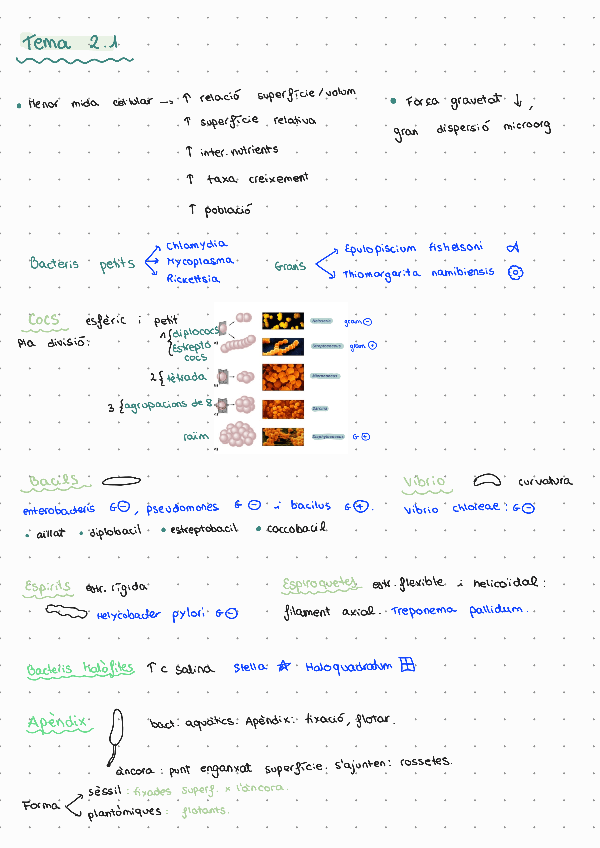 Tema 2.1
• Menor mida cel·lular → ↑ relació superfície/volum
↑ superfície relativa
↑ inter. nutrients
↑ taxa creixement
↑ població
• Força gravetat ↓,
gran dispersió microorg
Bacteris petits
Chlamydia
Mycoplasma
Rickettsia
Grans
Epulopiscium fishelsoni
Thiomargarita namibiensis
Cocs esfèric i petit
Pla divisió:
1 { diplococs
{ Estreptococs
2 { tètrada
3 { agrupacions de 8
raïm
Neisseria gram ⊖
Streptococcus gram ⊕
Micrococcus
Sarcina
Staphylococcus G ⊕
Bacils
enterobacteris G ⊖, pseudomones G ⊖ i bacilus G ⊕.
• aïllat • diplobacil • estreptobacil • coccobacil
Vibrio curvatura
vibrio chloleae: G ⊖
Espirils estr. rígida
Helycobacter pylori G ⊖
Espiroquetes estr. flexible i helicoïdal:
filament axial. Treponema pallidum.
Bacteris Halòfiles ↑ c salina Stella Haloquadratum
Apèndix bact: aquàtics: Apèndix: fixació, flotar.
àncora: punt enganxat superfície. s'ajunten: rossetes.
Forma
sèssil: fixades superf. x l'àncora.
planctòmiques: flotants.